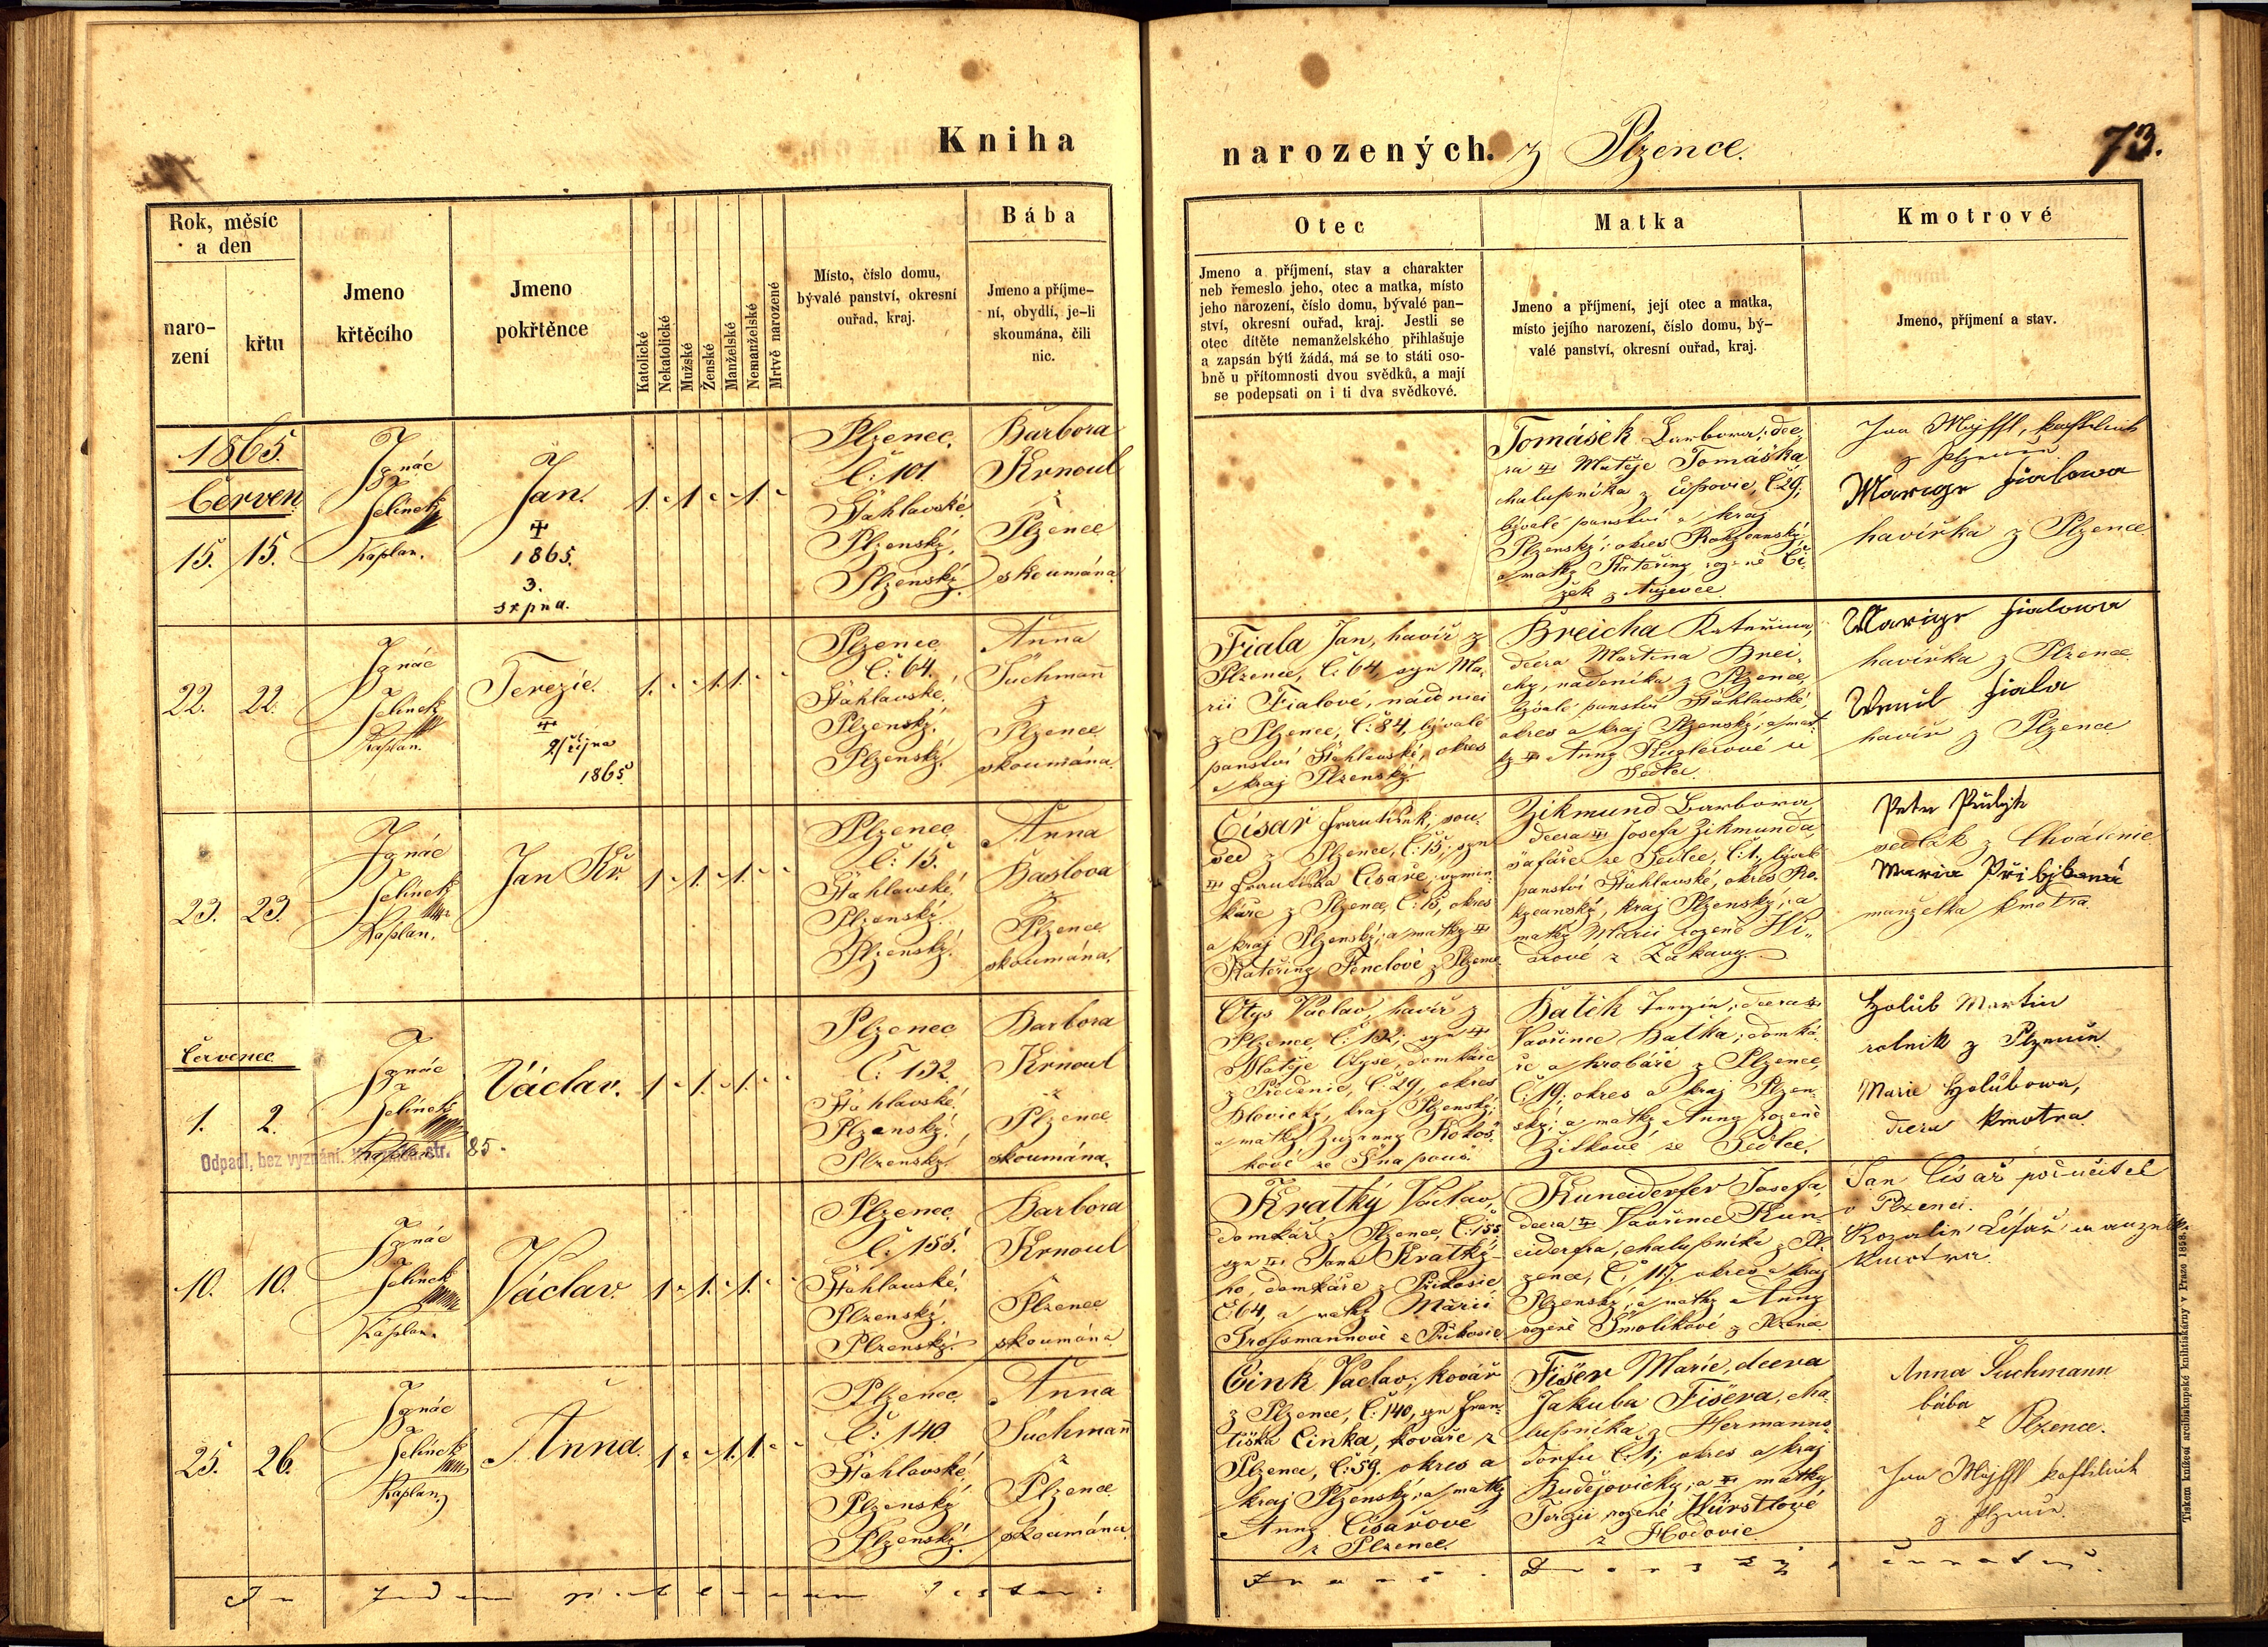 Kniha
narozených. z Plzence.
73.
Rok, měsíc
a den
naro-
zení
křtu
Jmeno
křtěcího
Jmeno
pokřtěnce
Katolické
Nekatolické
Mužské
Ženské
Manželské
Nemanželské
Mrtvě narozené
Místo, číslo domu,
bývalé panství, okresní
ouřad, kraj.
Bába
Jmeno a příjme-
ní, obydlí, je-li
skoumána, čili
nic.
Otec
Jmeno a příjmení, stav a charakter
neb řemeslo jeho, otec a matka, místo
jeho narození, číslo domu, bývalé pan-
ství, okresní ouřad, kraj. Jestli se
otec dítěte nemanželského přihlašuje
a zapsán býti žádá, má se to státi oso-
bně u přítomnosti dvou svědků, a mají
se podepsati on i ti dva svědkové.
Matka
Jmeno a příjmení, její otec a matka,
místo jejího narození, číslo domu, bý-
valé panství, okresní ouřad, kraj.
Kmotrové
Jmeno, příjmení a stav.
1865.
Červen
15. 15.
Ignác
Jelínek
kaplan.
Jan.
1865.
3.
srpna.
1. " 1. " 1. "
Plzenec.
Č: 101.
Šťáhlavské
Plzenský,
Plzenský.
Barbora
Krnoul
z
Plzence
skoumána
Tomášek Barbora, dce,
ra Matěje Tomáška
chalupníka z č29,
bývalé panství a kraj
Plzenský; okres Rokycanský,
a matky Kateřiny rozené Čí,
žek z
Jan
z
Marye Fialowa
havířka z Plzence
22. 22.
Ignác
Jelínek
Kaplan.
Terezie.
2/října
1865
1. " " 1. 1. "
Plzenec
č: 64.
Šťáhlavské,
Plzenský,
Plzenský.
Anna
Suchman̄
z
Plzence
skoumána.
Fiala Jan, havíř z
Plzence, č: 64, syn Ma,
rii Fialové, nádnici
z Plzence, č: 84, bývalé
panství Šťáhlavské, okres
a kraj Plzenský.
Breicha Kateřina,
dcera Martina Brei,
chy, nádeníka z Plzence,
bývalé panství Šťáhlavské
okres a kraj Plzenský; a mat,
ky Anny ze
Sedlce.
Marye Fialowa
havířka z Plzence
Fiala
havíř z Plzence
23. 23.
Ignác
Jelínek
Kaplan.
Jan Kř.
1. " 1. " 1. "
Plzenec
č: 15.
Šťáhlavské,
Plzenský.
Plzenský.
Anna
Baslova
z
Plzence
skoumána.
Císař František, sou,
sed z Plzence, č: 15; syn
Františka Císaře, výmin,
káře z Plzence, č: 15, okres
a kraj Plzenský; a matky
Kateřiny Fenclové z Plzence
Zikmund Barbora
dcera Josefa Zikmunda,
šafáře ze Sedlce, č:1, bývalé
panství Šťáhlavské, okres Ro,
kycanský, kraj Plzenský; a
matky Marii rozené
z Zákavy.
Petr
sedlák z Chválenic
Maria
manželka kmotra.
Červenec.
1. 2.
Ignác
Jelínek
Kaplan
Odpadl, bez vyznání. str. 85.
Václav.
1. " 1. " 1. "
Plzenec
č: 132.
Šťáhlavské,
Plzenský.
Plzenský.
Barbora
Krnoul
z
Plzence
skoumána.
Otys Václav, havíř z
Plzence, č: 132; syn
Matěje Otyse, domkáře
z Předenic, č: 29, okres
Blovický, kraj Plzenský;
a matky Zuzanny Kohoš,
kové ze Snapous.
Batěk Terezie, dcera
Vavřince Baťka, domká,
ře a hrobáře z Plzence,
č: 19; okres a kraj Plzen,
ský; a matky Anny rozené
Žitkové ze Sedlce.
Holub Martin
rolník z Plzence
Marie Holubowa,
dcera kmotra
10. 10.
Ignác
Jelínek
Kaplan.
Václav.
1. " 1. " 1. "
Plzenec
č: 155.
Šťáhlavské,
Plzenský.
Plzenský.
Barbora
Krnoul
z
Plzence
skoumána
Kratký Václav,
domkář z Plzence, č: 155
syn Jana Kratké-
ho, domkáře z Příkosic
č: 64, a matky Marii
Grossmannové z Příkosic
Kuneiderfer Josefa,
dcera Vavřince Kun,
eiderfra, chalupníka z Pl,
zence, č: 117. okres a kraj
Plzenský, a matky Anny
rozené Smolíkové z Plzence.
Jan Císař podučitel
v Plzenci.
Rozalie Císař manželka
kmotra.
25. 26.
Ignác
Jelínek
Kaplan
Anna.
1. " " 1. 1. "
Plzenec
č: 140
Šťáhlavské,
Plzenský
Plzenský.
Anna
Suchman̄
z
Plzence
skoumána
Cink Václav, kovář
z Plzence, č: 140, syn Fran,
tiška Cinka, kováře z
Plzence, č: 59. okres a
kraj Plzenský; a matky
Anny Císařové
z Plzence.
Fišer Marie, dcera
Jakuba Fišera, cha,
lupníka z Hermanns,
dorfu č: 1; okres a kraj
Budějovický; a matky
Terezii rozené Würstlové
z Hodovic
Anna Suchmann
bába
z Plzence.
Jan
z
Tiskem knížecí arcibiskupské knihtiskárny v Praze 1858.